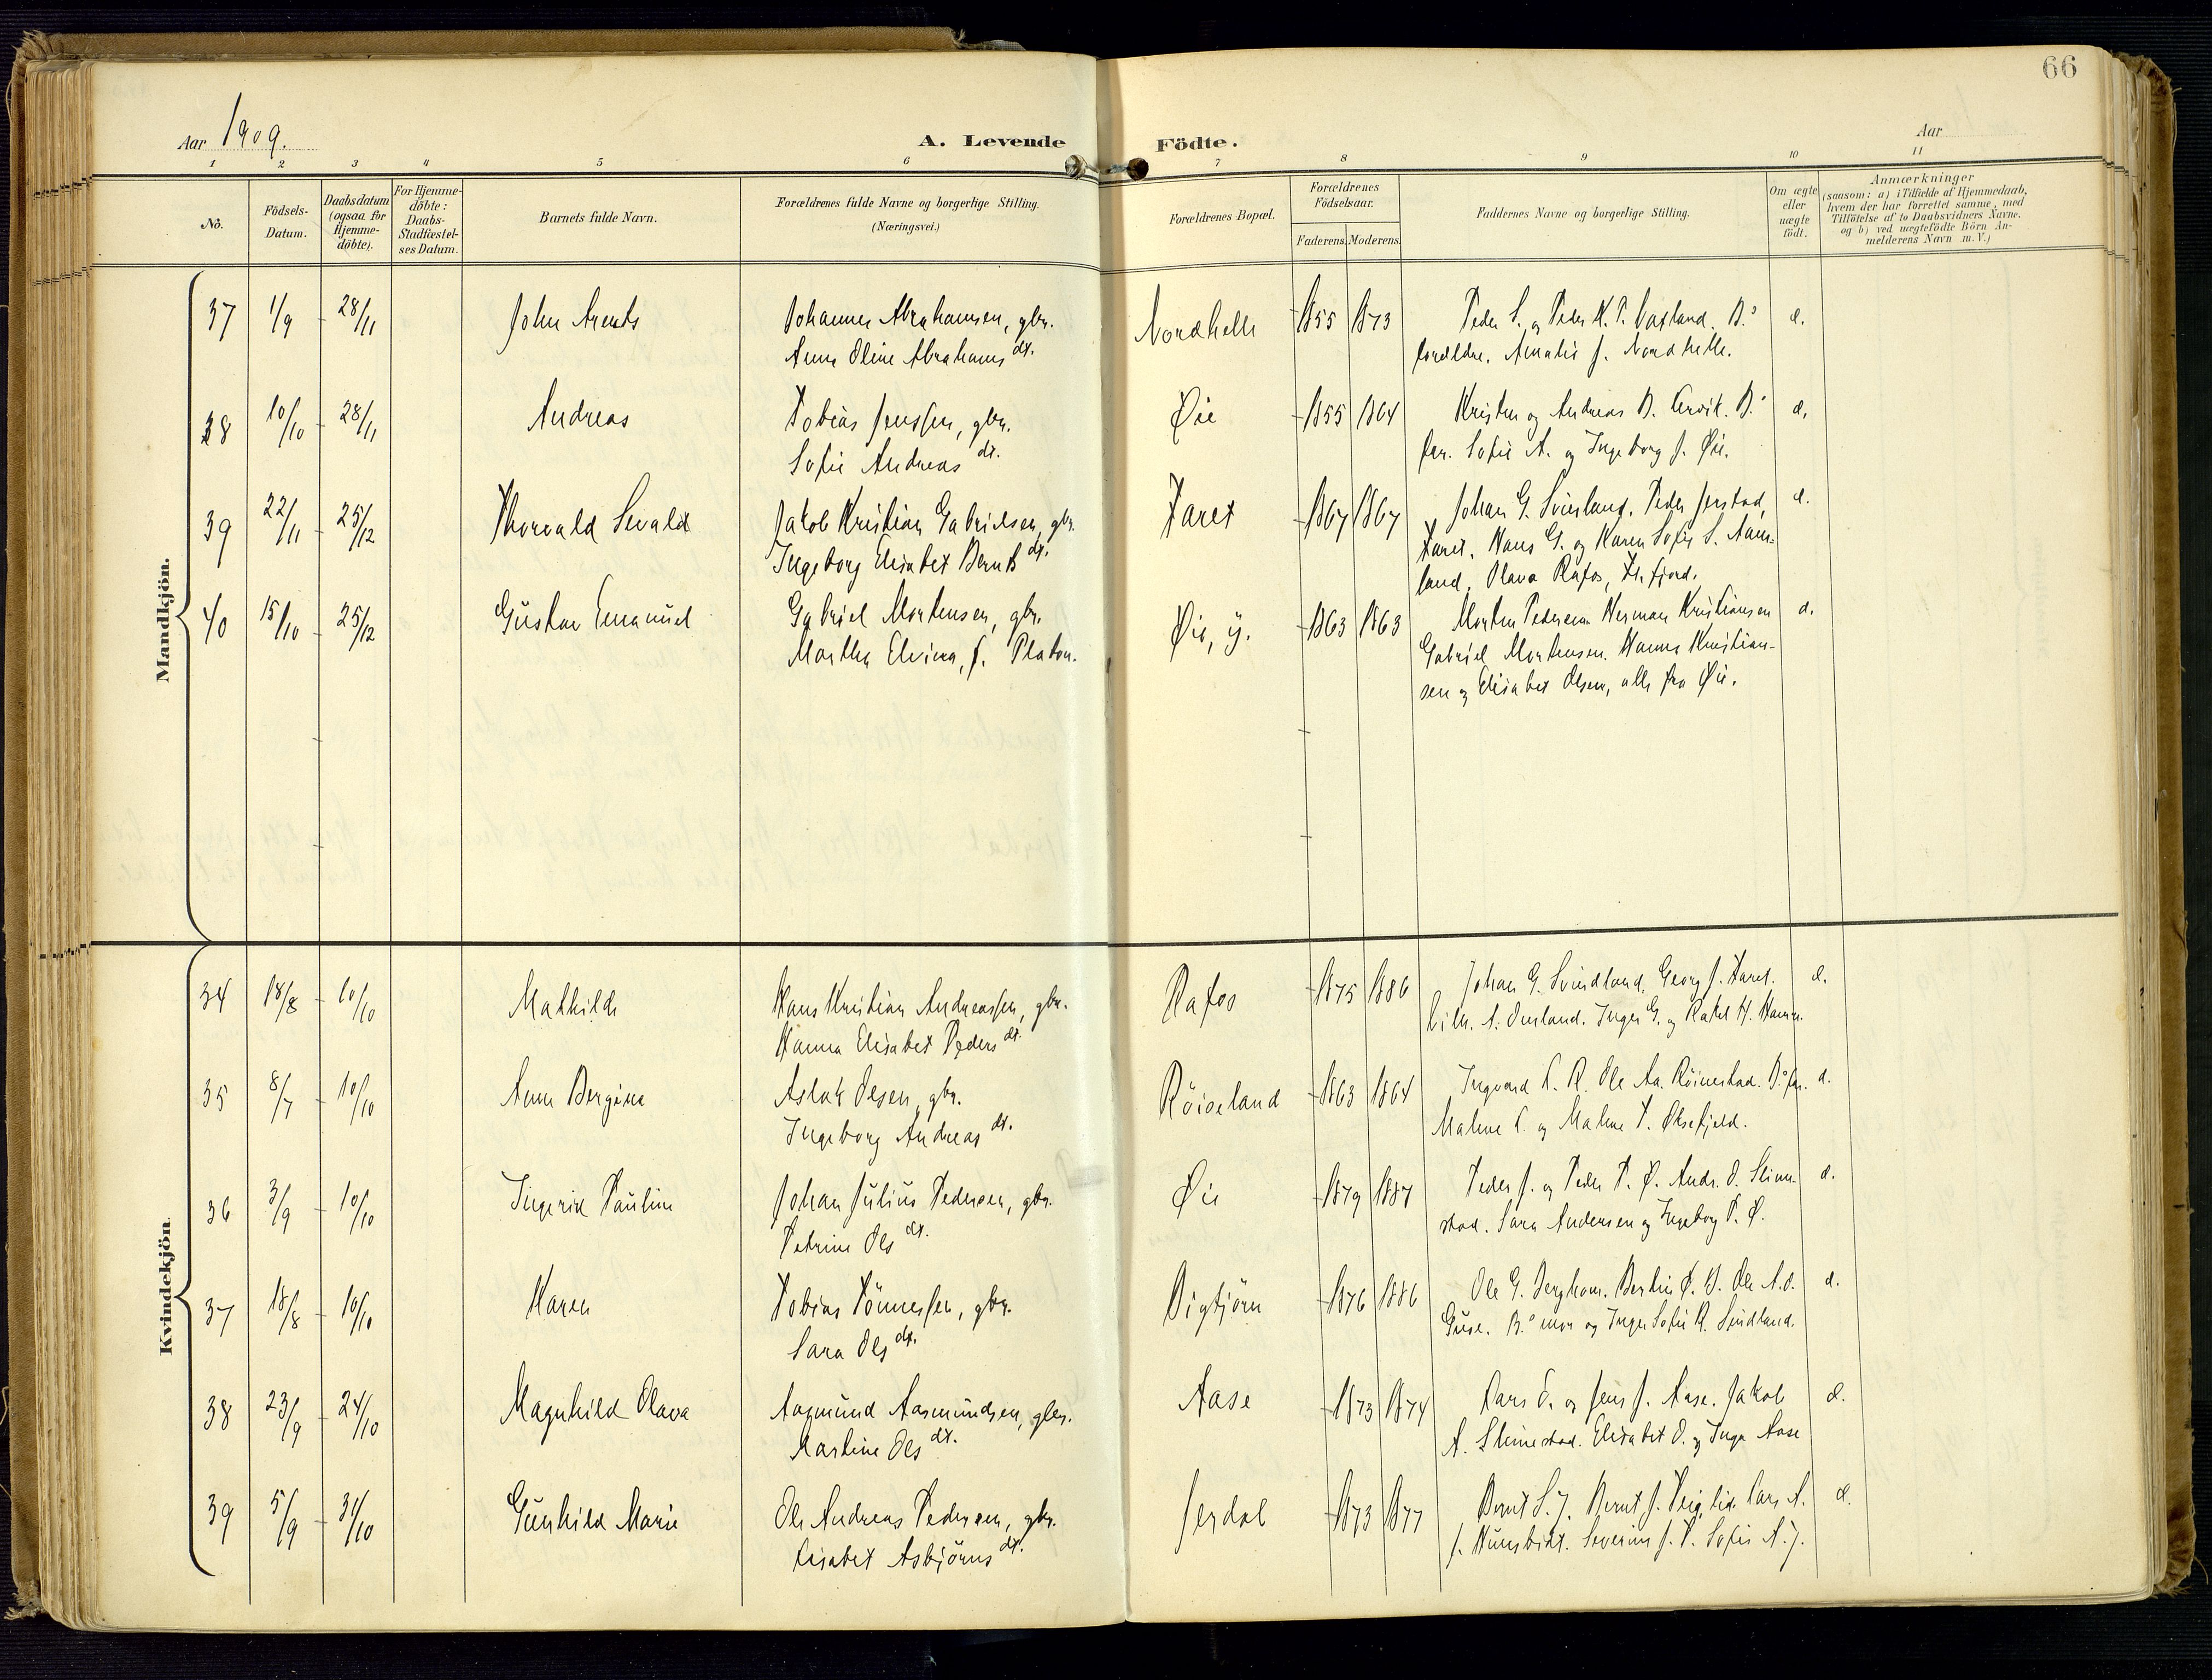 66
Aar 1909.
A. Levende Födte.
Aar
1 2 3 4 5 6 7 8 9 10 11
No.
Födsels-
Datum.
Daabsdatum
(ogsaa for
Hjemme-
döbte).
For Hjemme-
döbte:
Daabs-
Stadfæstel-
ses Datum.
Barnets fulde Navn.
Forældrenes fulde Navne og borgerlige Stilling.
(Næringsvei.)
Forældrenes Bopæl.
Forældrenes
Födselsaar.
Faderens. Moderens.
Faddernes Navne og borgerlige Stilling.
Om ægte
eller
uægte
födt.
Anmærkninger
(saasom: a) i Tilfælde af Hjemmedaab,
hvem der har forrettet samme, med
Tilföielse af to Daabsvidners Navne.
og b) ved uægtefödte Börn An-
melderens Navn m. V.)
Mandkjön.
37 1/9 28/11 John Arents Johannes Abrahamsen, gbr. Nordhelle 1855 1873 Peder S. og Peder K. P. B.s
Anna Oline Abrahams dt. forældre. Amalie J. Nordhelle.
38 10/10 28/11 Andreas Tobias Jenssen, gbr. Øie 1855 1864 Kristen og Andreas B. B.s
Sofie Andreas dt. for. Sofie A. og Ingeborg J. Øie.
39 22/11 25/12 Thorvald Sevald Jakob Kristian Gabrielsen, gbr. Faret 1867 1867 Johan G. Svindland. Peder Jerstad,
Ingeborg Elisabet Bernts dt. Faret. Hans G. og Karen Sofie S. Aam-
land, Olava Rafos, Fl.fjord.
40 15/10 25/12 Gustav Emanuel Gabriel Mortensen, gbr. Øie, y. 1863 1863 Morten Pedersen. Herman Kristiansen
Martha Elvina, f. Platon. Gabriel Mortensen. Hanna Kristian-
sen og Elisabet Olsen, alle fra Øie.
Kvindekjön.
34 18/8 10/10 Mathilde Hans Kristian Andreassen, gbr. Rafos 1875 1886 Johan G. Svindland. Georg J. Faret.
Hanna Elisabet Peders dt. A. Inger G. og Rakel H.
35 8/7 10/10 Anna Bergine Aslak Olsen, gbr. Röiseland 1863 1864 Ingvard R. Ole Aa. Röinestad. B.s far.
Ingeborg Andreas dt. Malene og Malene T. Oksefjeld.
36 3/9 10/10 Ingerid Pauline Johan Julius Pedersen, gbr. Øie 1879 1887 Peder J. og Peder P. Ø. Andr. O. Slime-
Petrine Ols dt. stad. Sara Andersen og Ingeborg P. Ø.
37 18/8 10/10 Karen Tobias Tönnessen, gbr. Bigtjörn 1876 1886 Ole G. Berghom. Ole A. O.
Sara Ols dt. B.s mor og Inger Sofie R. Sindland.
38 23/9 24/10 Magnhild Olava Aasmund Aasmundsen, gbr. Aase 1873 1874 Lars O. og Jens J. Aase. Jakob
Martine Ols dt. A. Slimestad. Elisabet O. og Inger Aase
39 5/9 31/10 Gunhild Marie Ole Andreas Pedersen, gbr. Jerdal 1873 1877 Bernt S. J. Bernt J. Lars A.
Lisabet Asbjörns dt. J. Severine J. Sofie A. J.